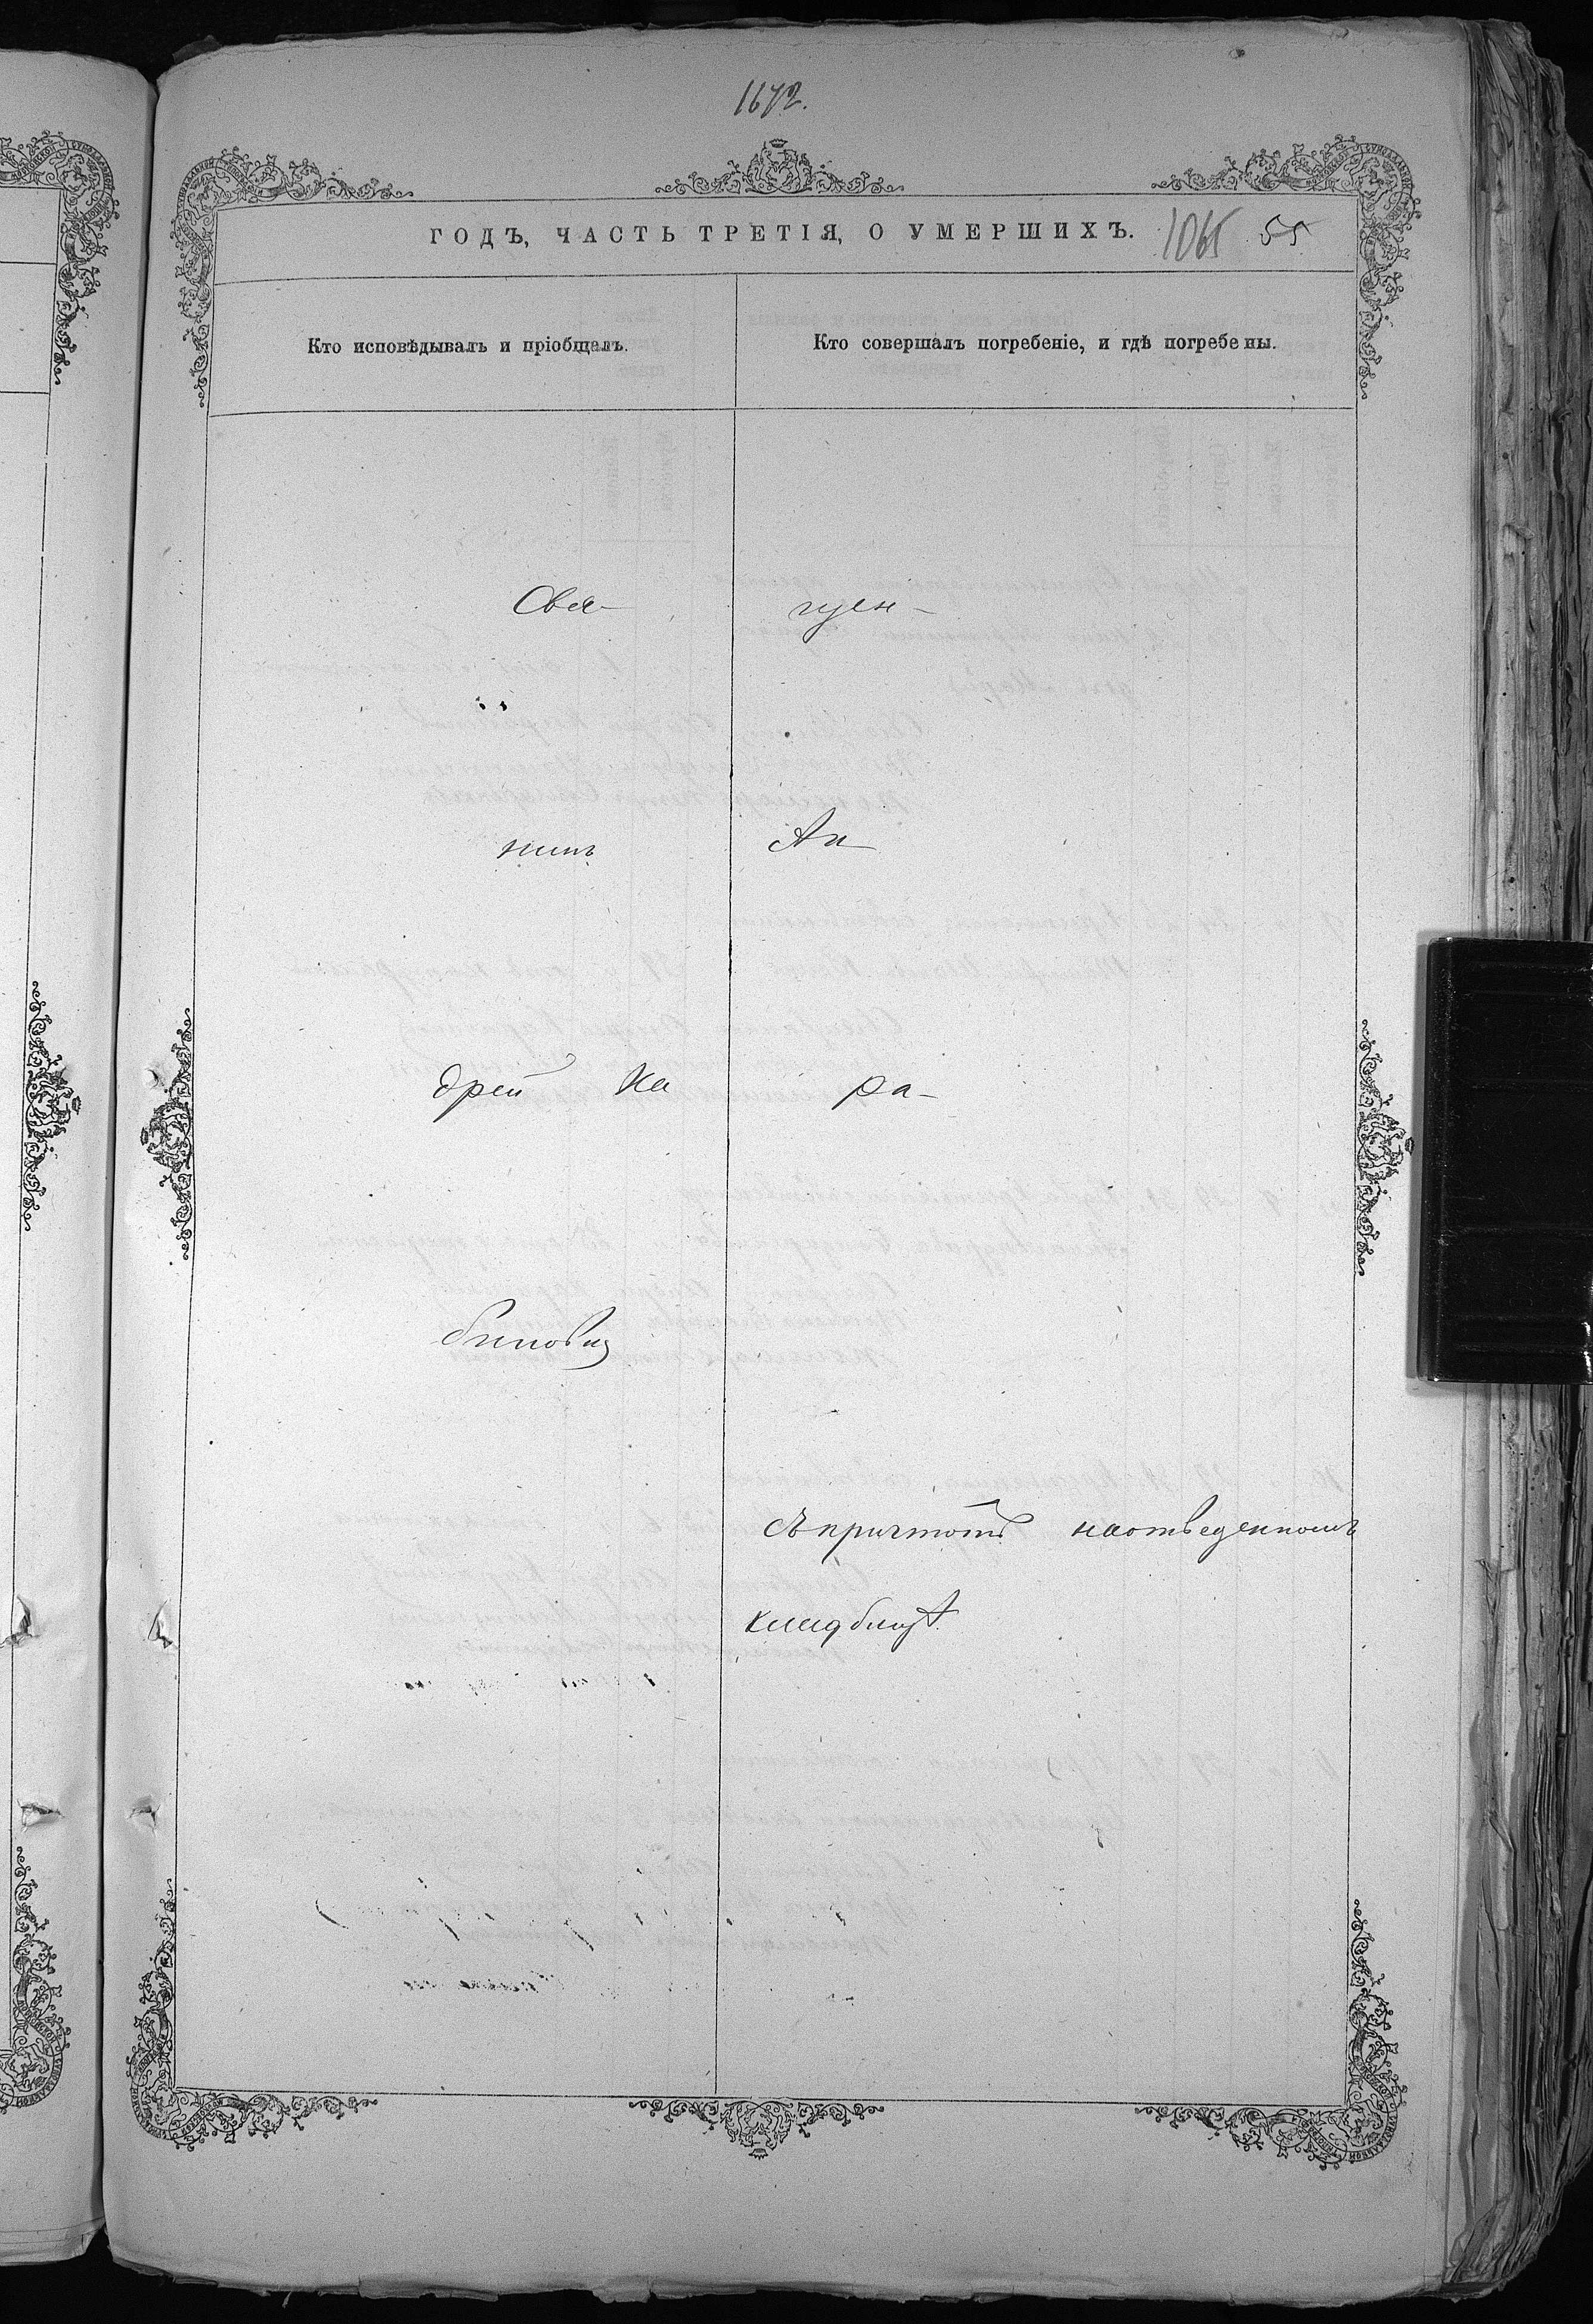 1672.
ГОДЪ, ЧАСТЬ ТРЕТІЯ, О УМЕРШИХЪ. 1065 55
Кто исповѣдывалъ и пріобщалъ.
Кто совершалъ погребеніе, и гдѣ погребены.
Свя- щен-
никъ Ан
дрей Ка ра-
биновиц
съ причтомъ на отведенномъ
кладбищѣ.